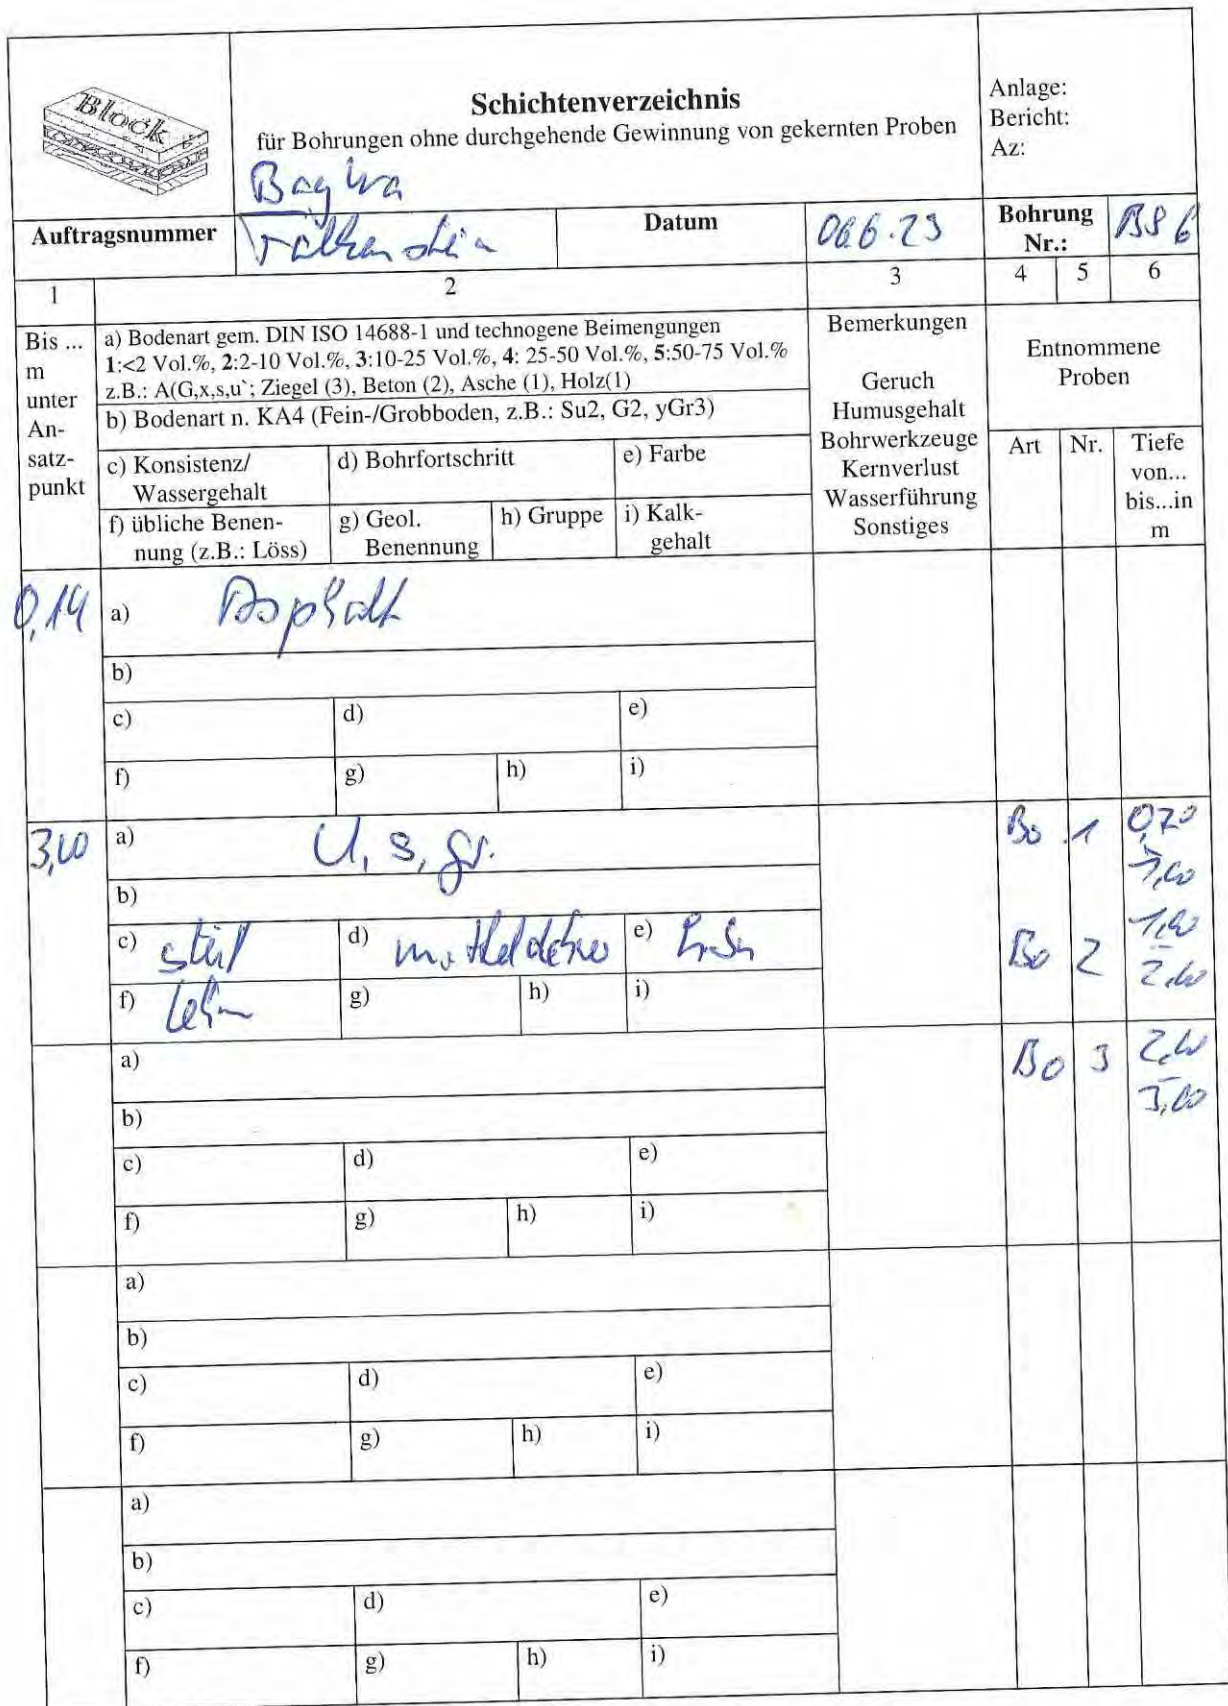 Block
Schichtenverzeichnis
für Bohrungen ohne durchgehende Gewinnung von gekernten Proben
BayWa
Anlage:
Bericht:
Az:
Auftragsnummer
Datum
06.6.23
Bohrung
Nr.:
BS 6
1
2
3
4
5
6
Bis ...
m
unter
An-
satz-
punkt
a) Bodenart gem. DIN ISO 14688-1 und technogene Beimengungen
1:<2 Vol.%, 2:2-10 Vol.%, 3:10-25 Vol.%, 4: 25-50 Vol.%, 5:50-75 Vol.%
z.B.: A(G,x,s,u`; Ziegel (3), Beton (2), Asche (1), Holz(1)
b) Bodenart n. KA4 (Fein-/Grobboden, z.B.: Su2, G2, yGr3)
c) Konsistenz/
Wassergehalt
d) Bohrfortschritt
e) Farbe
f) übliche Benen-
nung (z.B.: Löss)
g) Geol.
Benennung
h) Gruppe
i) Kalk-
gehalt
Bemerkungen
Geruch
Humusgehalt
Bohrwerkzeuge
Kernverlust
Wasserführung
Sonstiges
Entnommene
Proben
Art
Nr.
Tiefe
von...
bis...in
m
0,14
a) Asphalt
b)
c)
d)
e)
f)
g)
h)
i)
3,00
a) U, s, gr.
b)
c) steif
d)
e)
f) Lehm
g)
h)
i)
Bo 1 0,20
- 1,00
Bo 2 1,00
- 2,00
a)
b)
c)
d)
e)
f)
g)
h)
i)
Bo 3 2,00
- 3,00
a)
b)
c)
d)
e)
f)
g)
h)
i)
a)
b)
c)
d)
e)
f)
g)
h)
i)